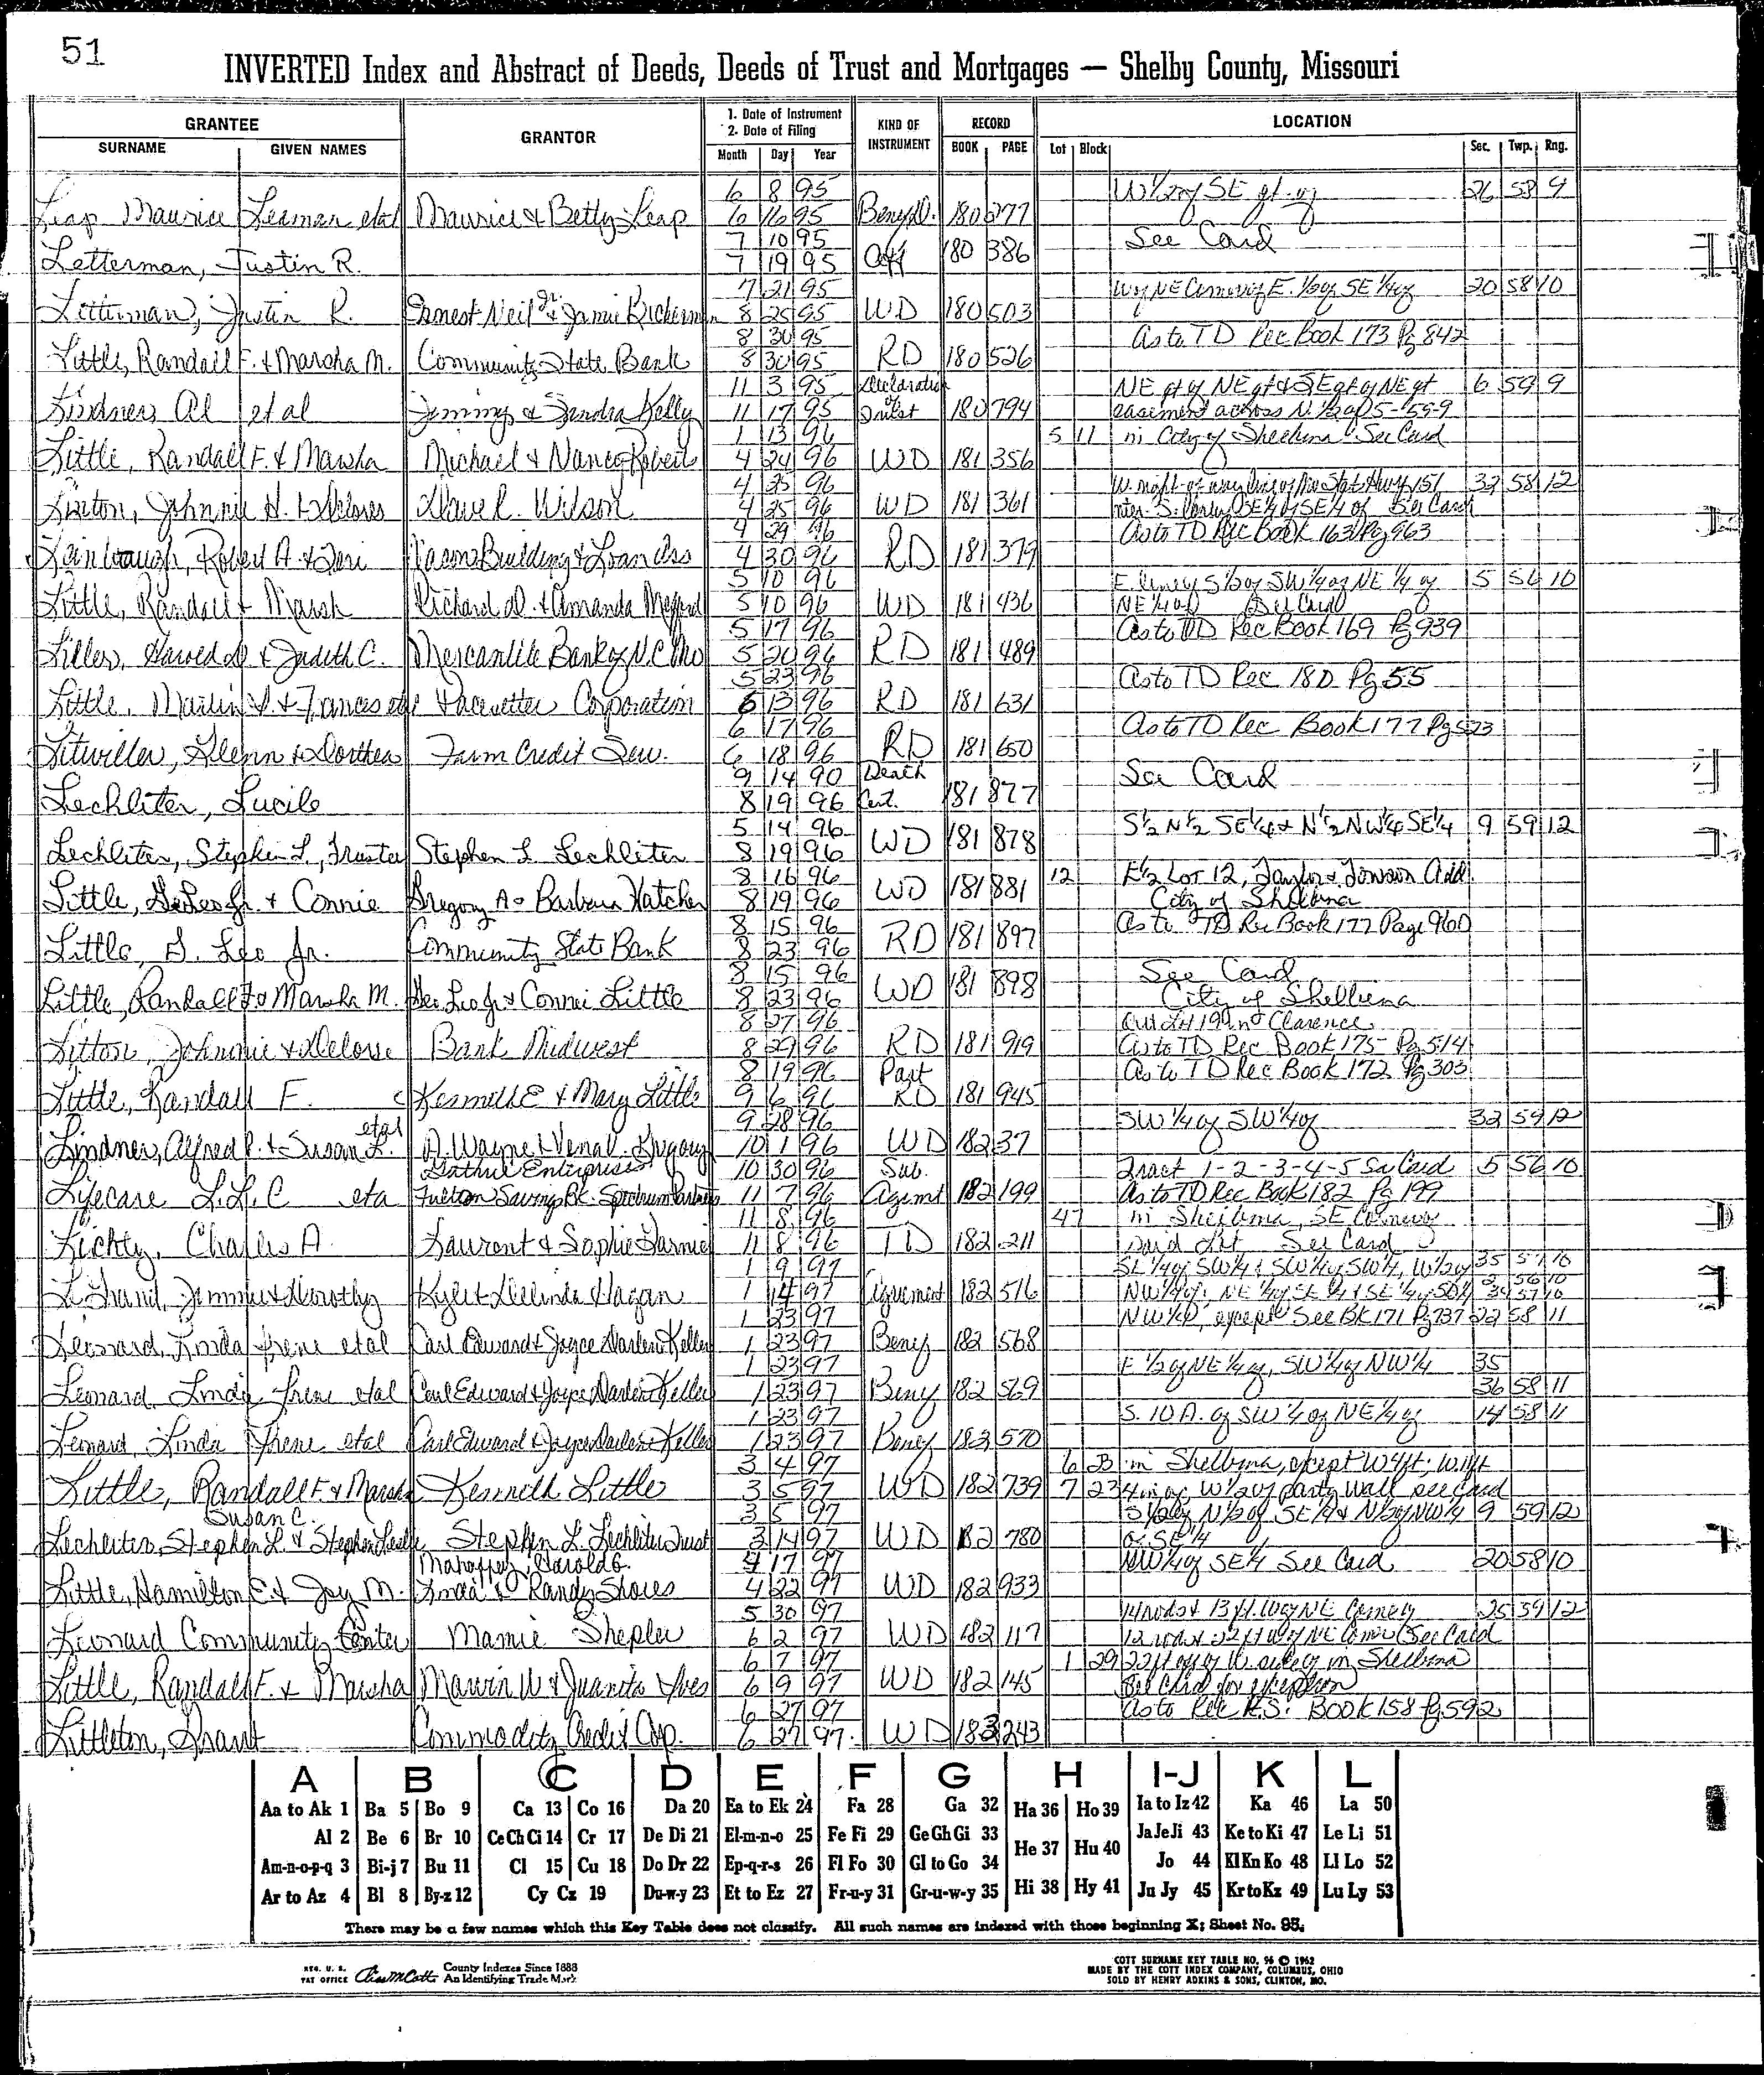 51
INVERTED Index and Abstract of Deeds, Deeds of Trust and Mortgages — Shelby County, Missouri
GRANTEE
SURNAME GIVEN NAMES
GRANTOR
1. Date of Instrument
2. Date of Filing
Month Day Year
KIND OF INSTRUMENT
RECORD
BOOK PAGE
LOCATION
Lot Block Sec. Twp. Rng.
6 8 95 W 1/2 of SE qt. of 26 58 9
Leap Maurice Leaman etal Maurice & Betty Leap 6 16 95 180 277
7 10 95 See Card
Letterman, Justin R. 7 19 95 Aff 180 386
7 21 95 E. 1/2 of SE 1/4 of 20 58 10
Letterman, Justin R. Ernest Neil Jr & Jamie 8 25 95 WD 180 503
8 30 95 As to TD Rec Book 173 Pg 842
Little, Randall F. & Marsha M. Community State Bank 8 30 95 RD 180 526
11 3 95 Declaration NE qt of NE qt & SE qt of NE qt 6 59 9
Lindner Al et al Jimmy & Sandra Kelly 11 17 95 of 180 794 easement across N. 1/2 of 5-59-9
1 13 96 5 11 in City of Shelbina See Card
Little, Randall F. & Marsha Michael & Nancy 4 24 96 WD 181 356
4 25 96 32 58 12
Linton, Johnnie H. & Delores Wilson 4 25 96 WD 181 361 SE 1/4 of SE 1/4 of See Card
4 29 96 As to TD Rec Book 163 Pg 963
Robert A. & Macon Building & Loan Ass 4 30 96 RD 181 379
5 10 96 S 1/2 of SW 1/4 of NE 1/4 of 5 56 10
Little, Randall & Marsh Richard D. & Amanda 5 10 96 WD 181 436 NE 1/4 of See Card
5 17 96 As to TD Rec Book 169 Pg 939
Harold D & Judith C. Mercantile Bank of N.C Mo 5 20 96 RD 181 489
5 23 96 As to TD Rec 180 Pg 55
Little, & Frances etal Pacesetter Corporation 6 13 96 RD 181 631
6 17 96 As to TD Rec Book 177 Pg 523
Litwiller, Glenn & Dorthea Farm Credit Serv. 6 18 96 RD 181 650
9 14 90 Death See Card
Lechliter, Lucile 8 19 96 Cert. 181 877
5 14 96 S 1/2 N 1/2 SE 1/4 & N 1/2 NW 1/4 SE 1/4 9 59 12
Lechliter, Stephen L., Trustee Stephen L Lechliter 8 19 96 WD 181 878
8 16 96 12 E 1/2 Lot 12, Taylor & Add.
Little, Jr. & Connie Gregory A & Barbara Hatcher 8 19 96 WD 181 881 City of Shelbina
8 15 96 As to TD Rec Book 177 Page 960
Little, G. Leo Jr. Community State Bank 8 23 96 RD 181 897
8 15 96 See Card
Little, Randall F & Marsha M. Leo Jr & Connie Little 8 23 96 WD 181 898 City of Shelbina
8 27 96 Out Lot 199 in Clarence
Johnnie & Delores Bank Midwest 8 29 96 RD 181 919 As to TD Rec Book 175 Pg 514
8 19 96 Part As to TD Rec Book 172 Pg 303
Little, Randall F. Kenneth E & Mary Little 9 6 96 RD 181 945
etal 9 28 96 SW 1/4 of SW 1/4 of 32 59 12
Lindner, Alfred P. & Susan L. A. Wayne & Gregory 10 1 96 WD 182 37
Guthrie Enterprises 10 30 96 Sub. Tract 1-2-3-4-5 See Card 5 56 10
Lifecare L.L.C eta Fulton Savings Bk. Spectrum 11 7 96 Agemt 182 199 As to TD Rec Book 182 Pg 199
11 8 96 47 in Shelbina, SE Corner of
Lichty, Charles A. Laurent & Sophie 11 8 96 TD 182 211 Said Lot See Card
1 9 97 SE 1/4 of SW 1/4 & SW 1/4 of SW 1/4, W 1/2 of 35 57 10
LeGrand, Jimmie & Dorothy Kyle & Delinda Hagan 1 14 97 Agreement 182 516
1 23 97 NW 1/4 of, except See BK 171 Pg 737 22 58 11
Leonard, Linda Irene etal Carl Edward & Joyce Darlene Keller 1 23 97 Beny 182 568
1 23 97 E 1/2 of NE 1/4 of, SW 1/4 of NW 1/4 35
Leonard, Linda Irene etal Carl Edward & Joyce Darlene Keller 1 23 97 Beny 182 569 36 58 11
1 23 97 S. 10 A. of SW 1/4 of NE 1/4 of 14 58 11
Leonard, Linda Irene etal Carl Edward & Joyce Darlene Keller 1 23 97 Beny 182 570
3 4 97 6 B in Shelbina, except
Little, Randall F. & Marsha Kenneth Little 3 5 97 WD 182 739 7 23 W 1/2 of party wall see card
Susan C. 3 5 97 S 1/2 of N 1/2 of SE 1/4 & N 1/2 of NW 1/4 9 59 12
Lechliter, Stephen L. & Stephen L. Lechliter Trust 3 14 97 WD 182 780 of SE 1/4
Mahaffey, Harold G. 4 17 97 NW 1/4 of SE 1/4 See Card 20 58 10
Little, Hamilton E. & Joy M. Linda & Randy Shores 4 22 97 WD 182 933
5 30 97 14 rods & 13 ft. W of NE Corner of 25 59 12
Leonard Community Center Mamie Shepler 6 2 97 WD 182 117 12 rods & 22 ft W of NE Corner (See Card
6 7 97 1 29 22 ft off of W. side of in Shelbina
Little, Randall F. & Marsha Marvin W & Juanita 6 9 97 WD 182 145 See Card for exception
6 27 97 As to Rec R.S. BOOK 158 Pg 592
Littleton, Grant Commodity Credit Corp. 6 27 97 WD 183 243
A B C D E F G H I-J K L
Aa to Ak 1 Ba 5 Bo 9 Ca 13 Co 16 Da 20 Ea to Ek 24 Fa 28 Ga 32 Ha 36 Ho 39 Ia to Iz 42 Ka 46 La 50
Al 2 Be 6 Br 10 Ce Ch Ci 14 Cr 17 De Di 21 El-m-n-o 25 Fe Fi 29 Ge Gh Gi 33 He 37 Hu 40 Ja Je Ji 43 Ke to Ki 47 Le Li 51
Am-n-o-p-q 3 Bi-j 7 Bu 11 Cl 15 Cu 18 Do Dr 22 Ep-q-r-s 26 Fl Fo 30 Gl to Go 34 Jo 44 Kl Kn Ko 48 Ll Lo 52
Ar to Az 4 Bl 8 By-z 12 Cy Cz 19 Du-w-y 23 Et to Ez 27 Fr-u-y 31 Gr-u-w-y 35 Hi 38 Hy 41 Ju Jy 45 Kr to Kz 49 Lu Ly 53
There may be a few names which this Key Table does not classify. All such names are indexed with those beginning X; Sheet No. 95.
REG. U. S. PAT OFFICE County Indexes Since 1888
An Identifying Trade Mark
COTT SURNAME KEY TABLE NO. 96 © 1962
MADE BY THE COTT INDEX COMPANY, COLUMBUS, OHIO
SOLD BY HENRY ADKINS & SONS, CLINTON, MO.